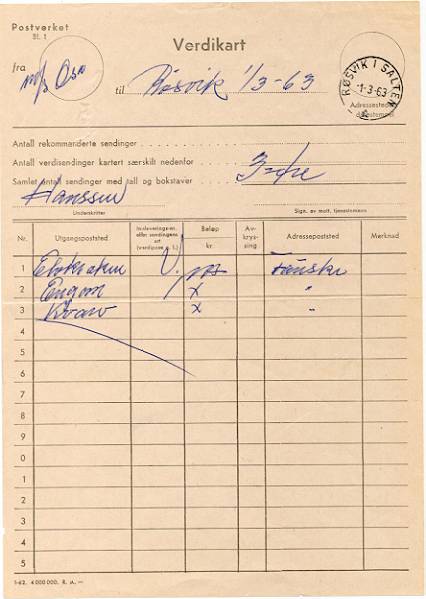 Postverket
Bl. 1
Verdikart
fra
til Røsvik 1/3-63
RØSVIK I SALTEN
-1-3-63
Adressestedets
datostempel
Antall rekommanderte sendinger
Antall verdisendinger kartert særskilt nedenfor
Samlet antall sendinger med tall og bokstaver
Hanssen
Underskrifter
Sign. av mott. tjenestemann
Nr.
Utgangspoststed
Innleverings-nr.
eller sendingens
art
Beløp
kr.
Av-
krys-
sing
Adressepoststed
Merknad
1 Fauske
2 x "
3 x "
4
5
6
7
8
9
0
1
2
3
4
5
1-62. 4 000 000.